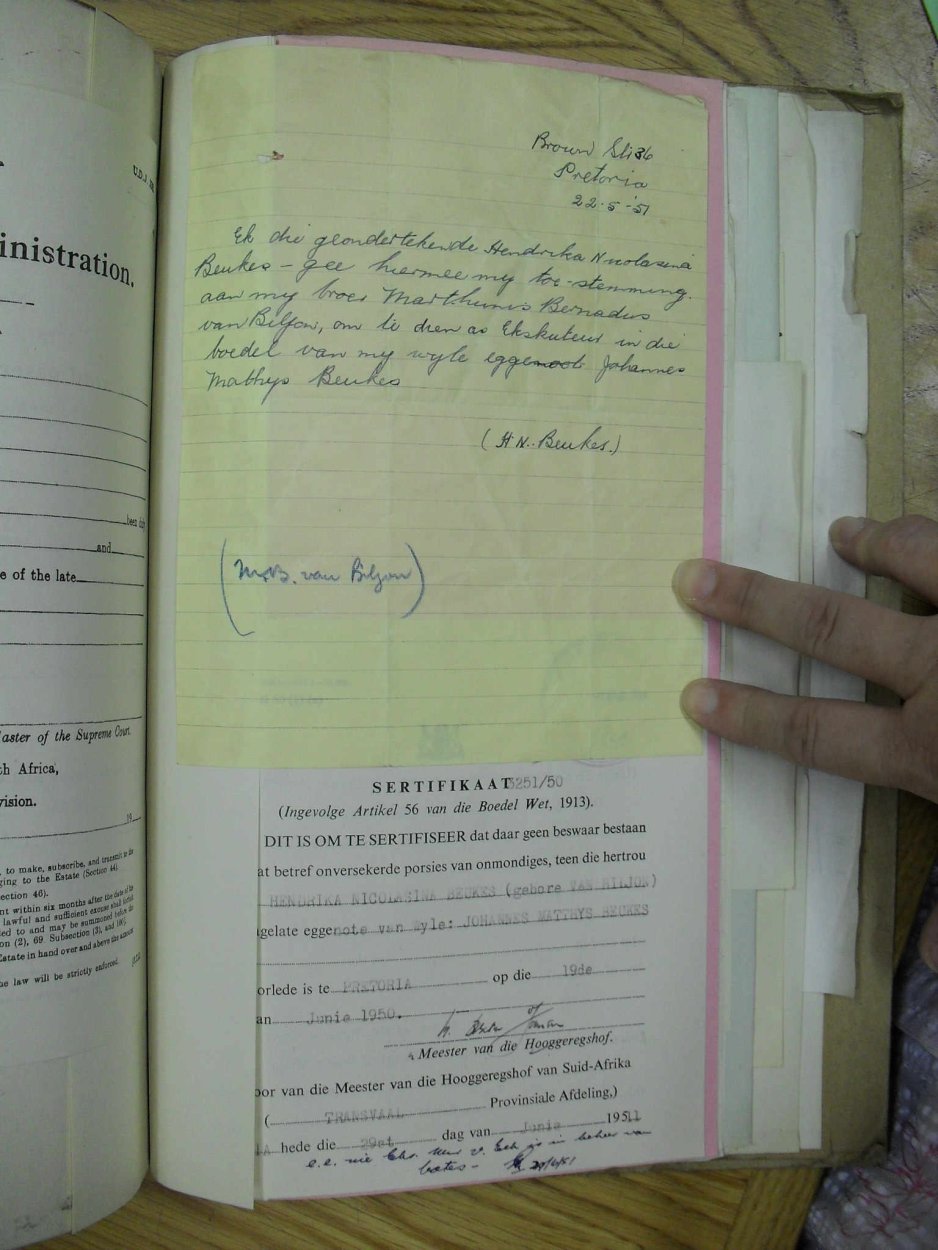 U.D.J.
inistration.
been duly
and
e of the late
aster of the Supreme Court
th Africa,
vision.
19
, to make, subscribe, and transmit to the
ging to the Estate (Section 44).
ection 46).
nt within six months after the date of the
lawful and sufficient excuse
led to and may be summoned before the
on (2), 69. Subsection (3), and 106).
Estate in hand over and above the amount
he law will be strictly enforced.
Brown St 136
Pretoria
22-5-'51
Ek die geondertekende Hendrika Nicolasina
Beukes – gee hiermee my toe-stemming
aan my broer Marthinis Bernadus
van Biljon, om te dien as Ekskuteur in die
boedel van my wyle eggenoot Johannes
Matthys Beukes
(H N. Beukes.)
(M.B. van Biljon)
SERTIFIKAAT 3251/50
(Ingevolge Artikel 56 van die Boedel Wet, 1913).
DIT IS OM TE SERTIFISEER dat daar geen beswaar bestaan
at betref onversekerde porsies van onmondiges, teen die hertrou
HENDRIKA NICOLASINA BEUKES (gebore VAN BILJON)
gelate eggenote van wyle: JOHANNES MATTHYS BEUKES
orlede is te PRETORIA op die 19de
an Junie 1950.
Meester van die Hooggeregshof.
oor van die Meester van die Hooggeregshof van Suid-Afrika
( TRANSVAAL Provinsiale Afdeling,)
IA hede die 29st dag van Junie 1951
e.e. nie in beheer van
bates – 29/6/51